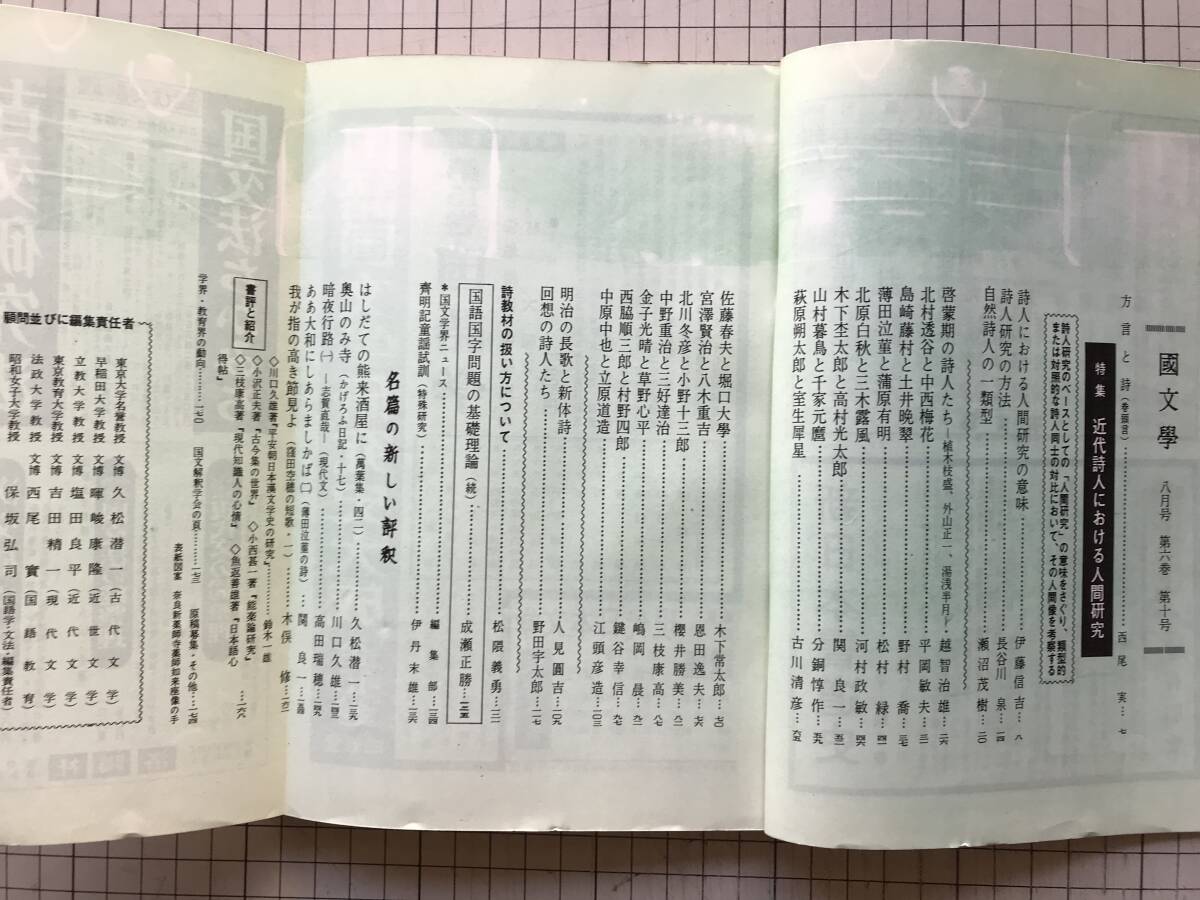 國文學 八月号 第六巻 第十号
方言と詩(巻頭言)……西尾 実…七
特集 近代詩人における人間研究
詩人研究のベースとしての「人間研究」の意味をさぐり、類型的
または対照的な詩人同士の対比において、その人間像を考察する
詩人における人間研究の意味……伊藤信吉…八
詩人研究の方法……長谷川 泉…一四
自然詩人の一類型……瀬沼茂樹…二〇
啓蒙期の詩人たち―植木枝盛、外山正一、湯浅半月ド…越智治雄…二六
北村透谷と中西梅花……平岡敏夫…三一
島崎藤村と土井晩翠……野村 喬…三七
薄田泣菫と蒲原有明……松村 緑…四一
北原白秋と三木露風……河村政敏…四六
木下杢太郎と高村光太郎……関 良一…五一
山村暮鳥と千家元麿……分銅惇作…五九
萩原朔太郎と室生犀星……古川清彦…六五
佐藤春夫と堀口大學……木下常太郎…七〇
宮澤賢治と八木重吉……恩田逸夫…七六
北川冬彦と小野十三郎……櫻井勝美…八二
中野重治と三好達治……三枝康高…八七
金子光晴と草野心平……嶋岡 晨…九二
西脇順三郎と村野四郎……鍵谷幸信…九七
中原中也と立原道造……江頭彦造…一〇三
明治の長歌と新体詩……人見圓吉…一〇九
回想の詩人たち……野田宇太郎…一一七
詩教材の扱い方について……松隈義勇…一二一
国語国字問題の基礎理論(続)……成瀬正勝…一二五
*国文学界ニュース……編集部…一三四
齊明記童謡試訓(特殊研究)……伊丹末雄…一三六
名篇の新しい評釈
はしだての熊来酒屋に(萬葉集・四二)……久松潜一…一三九
奥山のみ寺(かげろふ日記・十七)……川口久雄…一四三
暗夜行路(一)―志賀直哉―(現代文)……高田瑞穂…一四九
ああ大和にしあらましかば(二)(薄田泣菫の詩)…関 良一…一五四
我が指の高き節見よ(窪田空穂の短歌・一)……木俣 修…一六二
書評と紹介
◇川口久雄著『平安朝日本漢文学史の研究』……鈴木一雄
◇小沢正夫著『古今集の世界』 ◇小西甚一著『能楽論研究』
◇三枝康高著『現代知識人の心情』 ◇魚返善雄著『日本語心
得帖』……一六六
学界・教育界の動向……一七〇 国文解釈学会の頁……一七三 原稿募集・その他…一七四
表紙図案 奈良新薬師寺薬師如来座像の手
顧問並びに編集責任者
東京大学名誉教授 文博 久松潜一(古代文学)
早稲田大学教授 文博 暉峻康隆(近世文学)
立教大学教授 文博 塩田良平(近代文学)
東京教育大学教授 文博 吉田精一(現代文学)
法政大学教授 文博 西尾 實(国語教育)
昭和女子大学教授 保坂弘司(国語学・文法・編集責任者)